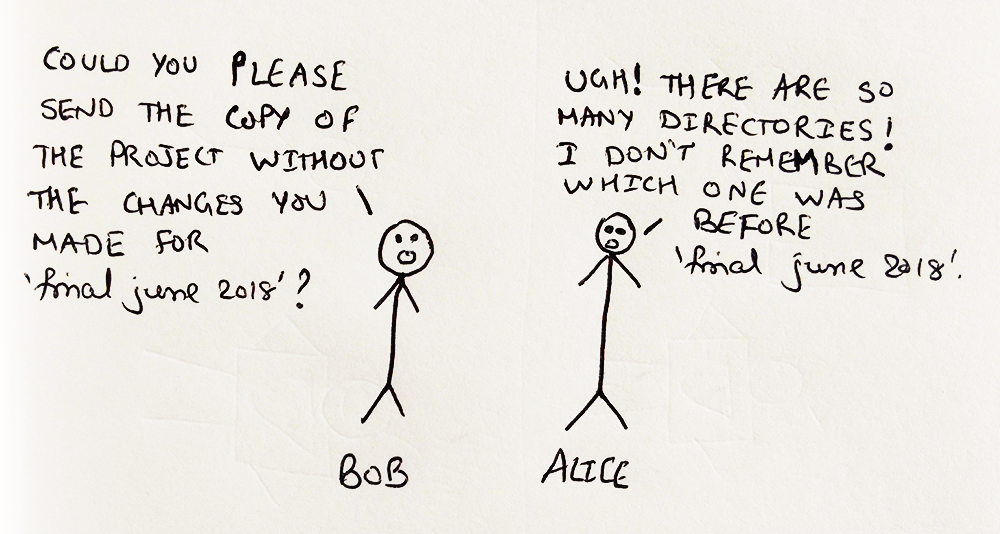 COULD YOU PLEASE
SEND THE COPY OF
THE PROJECT WITHOUT
THE CHANGES YOU
MADE FOR
'final june 2018'?
UGH! THERE ARE SO
MANY DIRECTORIES!
I DON'T REMEMBER
WHICH ONE WAS
BEFORE
'final june 2018'.
BOB
ALICE